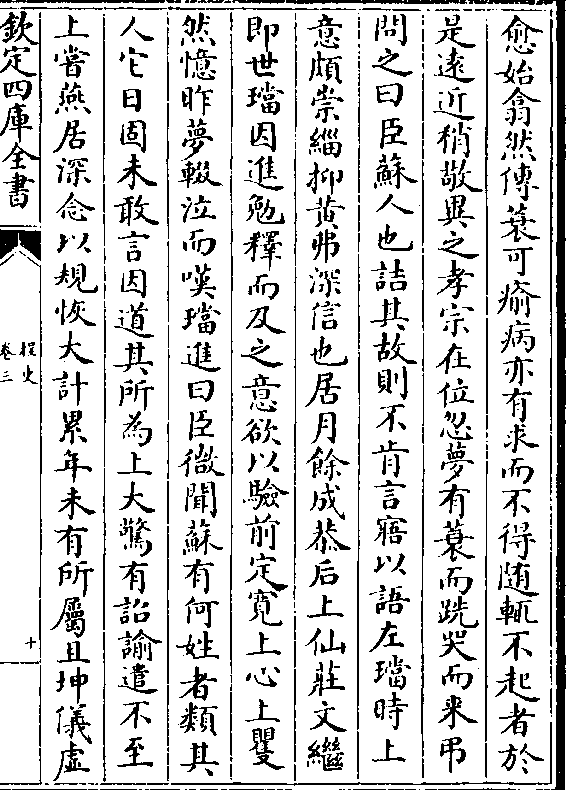 愈始翕然傳蓑可瘉病亦有求而不得随輒不起者於
是遠近稍敬異之孝宗在位忽夢有蓑而跣哭而来弔
問之曰臣蘇人也詰其故則不肯言寤以語左璫時上
意頗崇緇抑黄弗深信也居月餘成恭后上仙莊文繼
即世璫因進勉釋而及之意欲以驗前定寛上心上矍
然憶昨夢輟泣而嘆璫進曰臣微聞蘇有何姓者類其
人它日固未敢言因道其所為上大驚有詔諭遣不至
上嘗燕居深念以規恢大計累年未有所屬且坤儀虚
欽定四庫全書
桯史
卷三
十